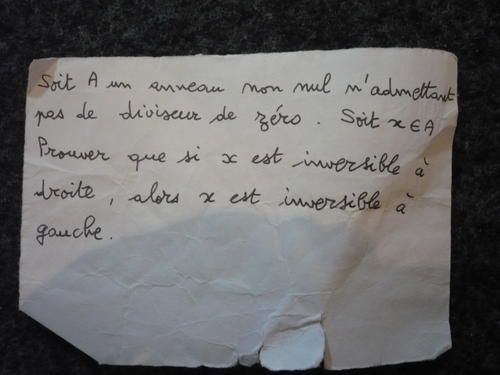 Soit A un anneau non nul n'admettant
pas de diviseur de zéro. Soit x ∈ A
Prouver que si x est inversible à
droite, alors x est inversible à
gauche.